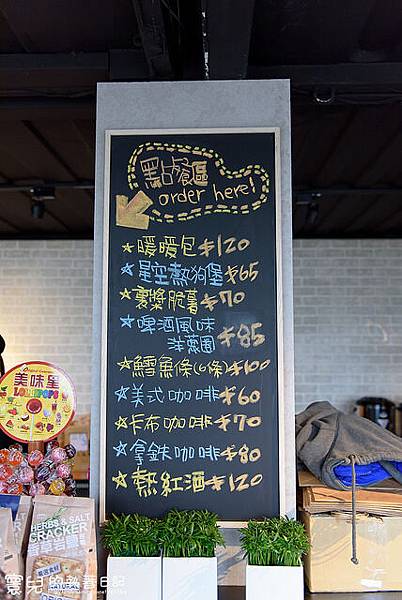 點餐區
order here!
☆暖暖包 $120
☆星空熱狗堡 $65
☆裹漿脆薯 $70
☆啤酒風味
洋蔥圈 $85
☆鱈魚條(6條) $100
☆美式咖啡 $60
☆卡布咖啡 $70
☆拿鐵咖啡 $80
☆熱紅酒 $120
美味星
LOLLIPOPS
HERBS & SALT
CRACKER
香草岩鹽
NATURAL
雲兒的熱著日記